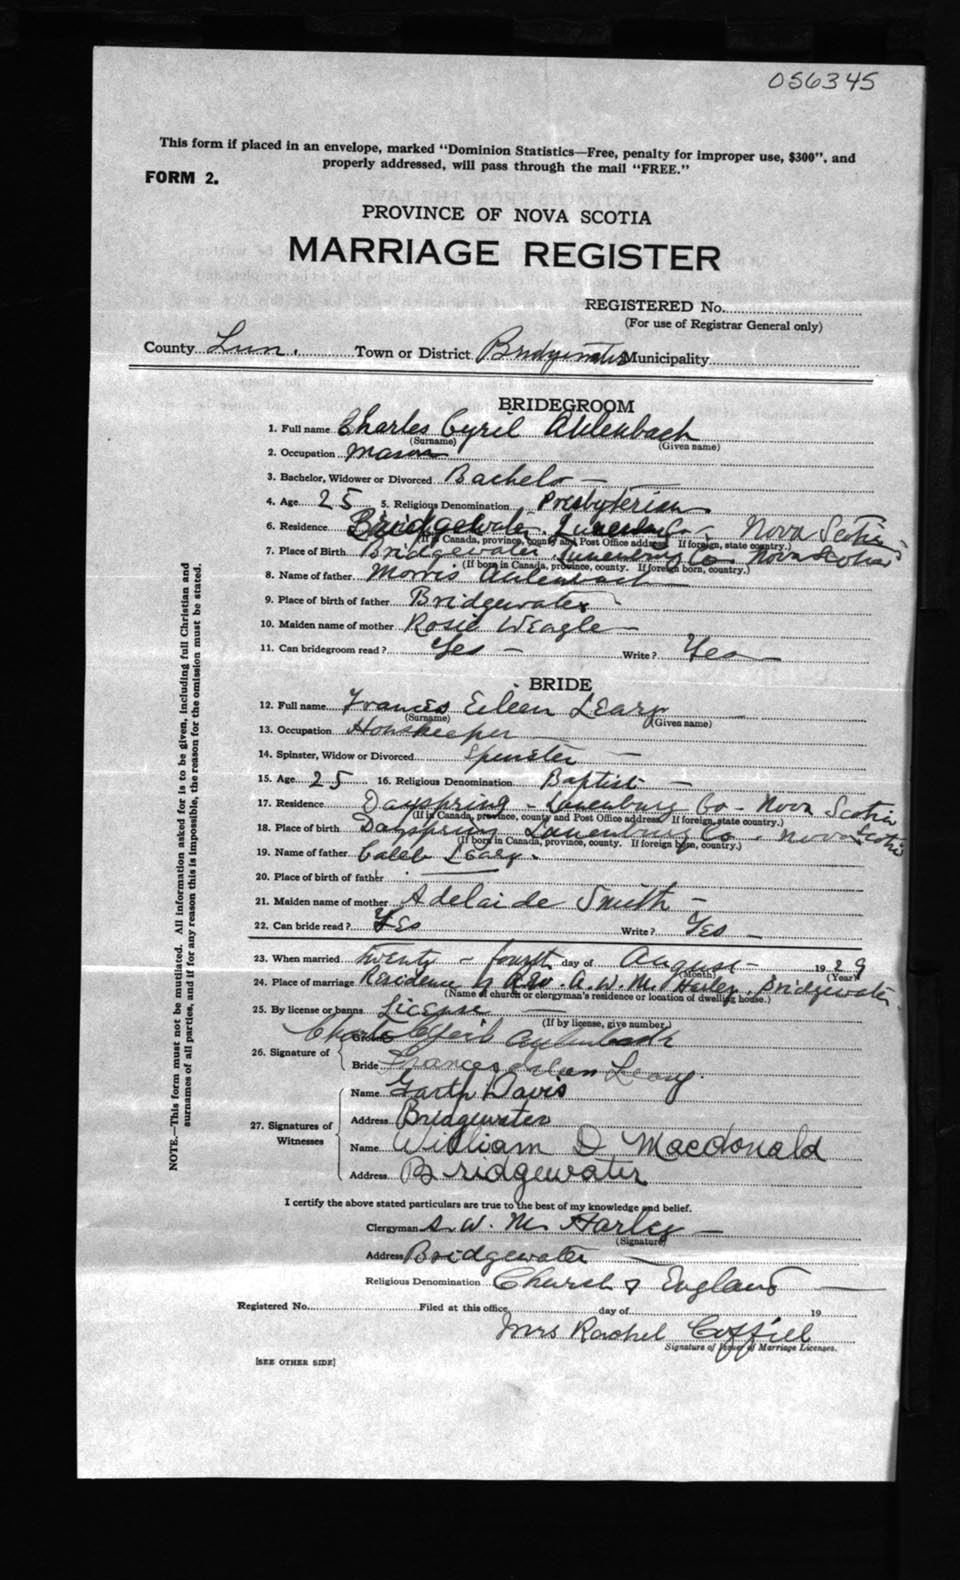 056345
This form if placed in an envelope, marked "Dominion Statistics—Free, penalty for improper use, $300", and
properly addressed, will pass through the mail "FREE."
FORM 2.
PROVINCE OF NOVA SCOTIA
MARRIAGE REGISTER
REGISTERED No.
(For use of Registrar General only)
County Lun. Town or District Bridgewater Municipality
BRIDEGROOM
1. Full name Charles Cyril Aulenbach
(Surname) (Given name)
2. Occupation Mason
3. Bachelor, Widower or Divorced Bachelor
4. Age 25 5. Religious Denomination Presbyterian
6. Residence Bridgewater Lunenburg Co - Nova Scotia
(If in Canada, province, county and Post Office address. If foreign, state country.)
7. Place of Birth Bridgewater Lunenburg Co. Nova Scotia
(If born in Canada, province, county. If foreign born, country.)
8. Name of father Morris Aulenbach
9. Place of birth of father Bridgewater
10. Maiden name of mother Rosie Weagle -
11. Can bridegroom read? Yes - Write? Yes -
BRIDE
12. Full name Frances Eileen Leary
(Surname) (Given name)
13. Occupation Houskeeper
14. Spinster, Widow or Divorced Spinster -
15. Age 25 16. Religious Denomination Baptist -
17. Residence Dayspring - Lunenburg Co - Nova Scotia
(If in Canada, province, county and Post Office address. If foreign, state country.)
18. Place of birth Dayspring Lunenburg Co. Nova Scotia
(If born in Canada, province, county. If foreign born, country.)
19. Name of father Caleb Leary.
20. Place of birth of father
21. Maiden name of mother Adelaide Smith -
22. Can bride read? Yes Write? Yes -
23. When married twenty - fourth day of August - 1929
(Month) (Year)
24. Place of marriage Residence of Rev. A. W. M. Harley, Bridgewater
(Name of church or clergyman's residence or location of dwelling house.)
25. By license or banns License -
(If by license, give number)
26. Signature of
Groom Charles Cyril Aulenback
Bride Frances Eileen Leary.
27. Signatures of Witnesses
Name Garth Davis
Address Bridgewater
Name William D Macdonald
Address Bridgewater
I certify the above stated particulars are true to the best of my knowledge and belief.
Clergyman A. W. M. Harley -
(Signature)
Address Bridgewater
Religious Denomination Church of England -
Registered No. Filed at this office day of 19
Mrs Rachel Coffill
Signature of Issuer of Marriage Licenses.
[SEE OTHER SIDE]
NOTE.—This form must not be mutilated. All information asked for is to be given, including full Christian and
surnames of all parties, and if for any reason this is impossible, the reason for the omission must be stated.